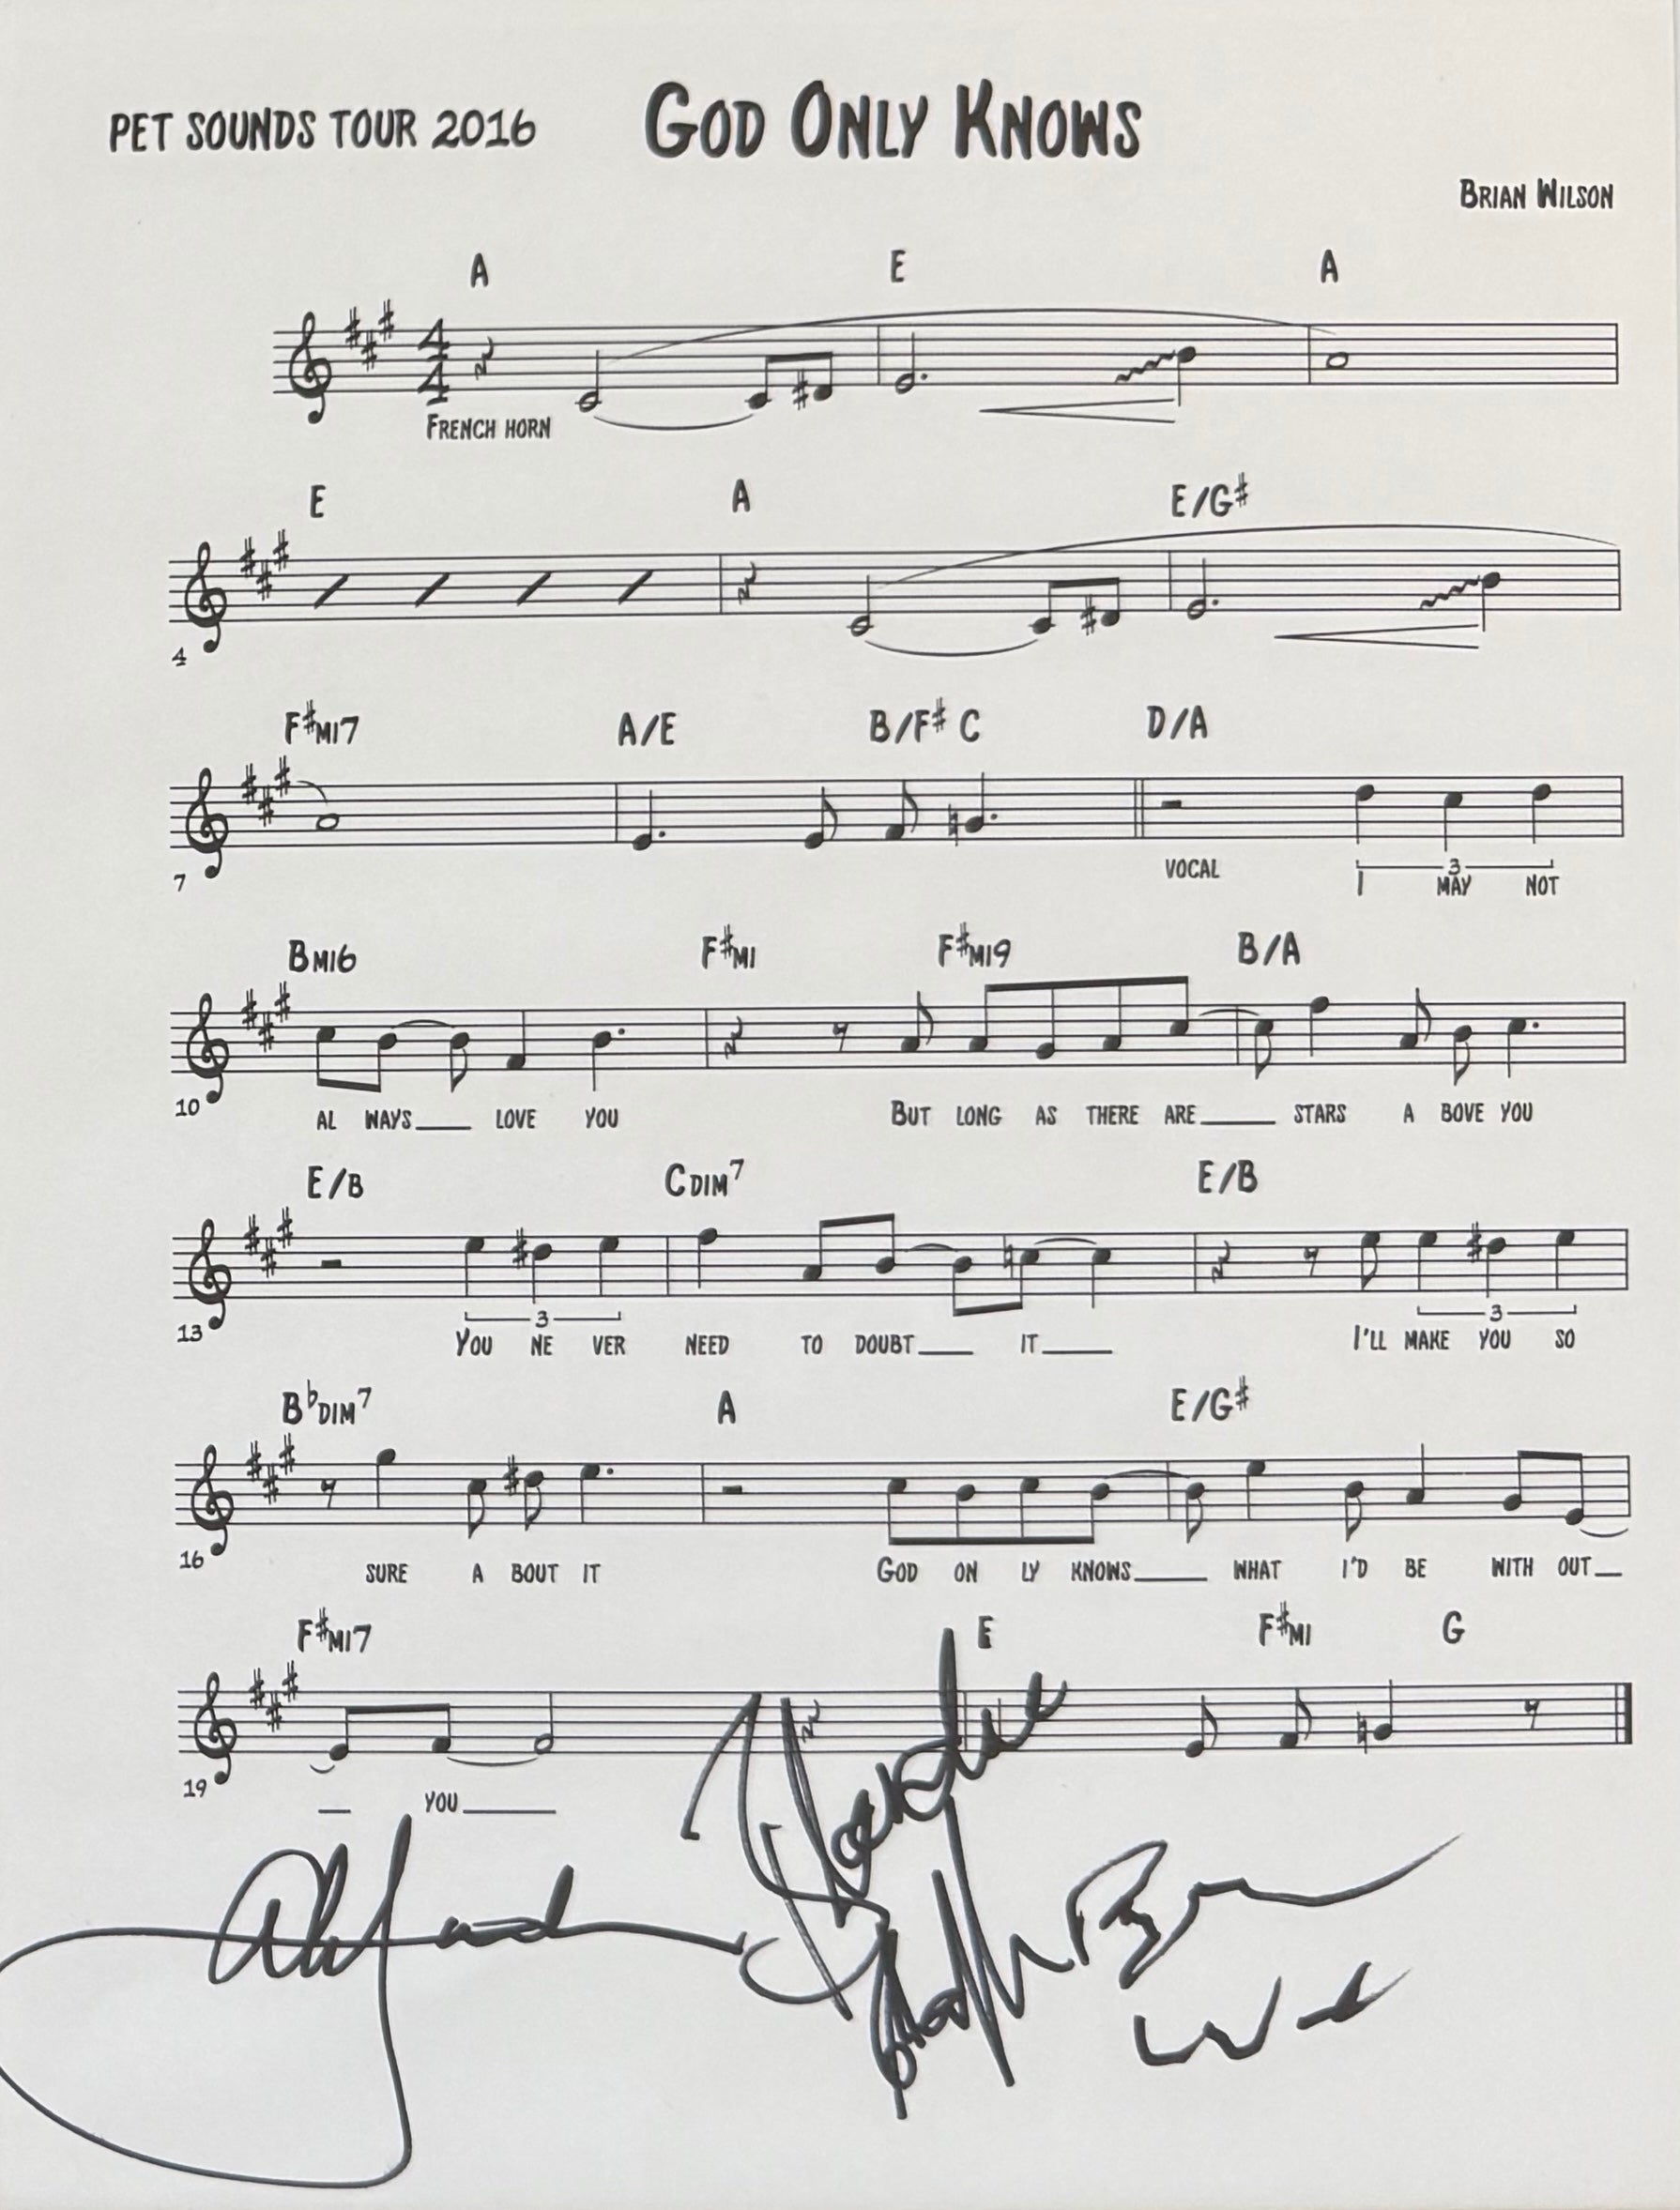 PET SOUNDS TOUR 2016 GOD ONLY KNOWS
BRIAN WILSON
A E A
4
4
FRENCH HORN
E A E/G♯
4
F♯MI7 A/E B/F♯ C D/A
7
VOCAL 3
I MAY NOT
BMI6 F♯MI F♯MI9 B/A
10
AL WAYS___ LOVE YOU BUT LONG AS THERE ARE____ STARS A BOVE YOU
E/B CDIM7 E/B
13
3 3
YOU NE VER NEED TO DOUBT___ IT____ I'LL MAKE YOU SO
B♭DIM7 A E/G♯
16
SURE A BOUT IT GOD ON LY KNOWS____ WHAT I'D BE WITH OUT__
F♯MI7 E F♯MI G
19
__ YOU_____